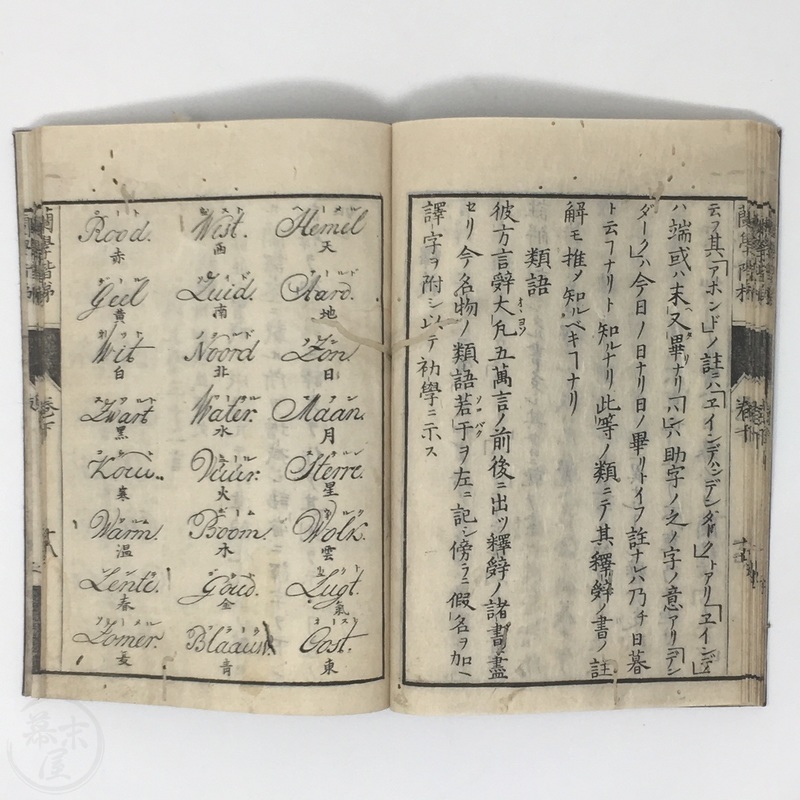 云フ其「アポンド」ノ註ニハ「ヱインデハンデンダーク」トアリ「ヱインデ」
ハ端或ハ末又畢ナリ「ハン」ハ助字ノ之ノ字ノ意アリ「デン
ダーク」ハ今日ノ日ナリ日ノ畢リトイフ註ナレハ乃チ日暮
ト云フナリト知ルナリ此等ノ類ニテ其釋辭ノ書ノ註
解モ推メ知ルベキヿナリ
類語
彼方言辭大凡五萬言ノ前後ニ出ツ釋辭ノ諸書ニ盡
セリ今名物ノ類語若干ヲ左ニ記シ傍ラニ假名ヲ加ヘ
譯字ヲ附シ以テ初學ニ示ス
蘭學階梯
卷下
Hemel
天
Aard.
地
Zon.
日
Maan.
月
Sterre.
星
Wolk.
雲
Lugt.
氣
Oost.
東
West.
西
Zuid.
南
Noord
北
Water.
水
Vuur.
火
Boom.
木
Goud.
金
Blaauw.
青
Rood.
赤
Geel
黄
Wit
白
Zwart
黒
Kouw.
寒
Warm.
温
Lente.
春
Zomer.
夏
蘭學階梯
卷下
十八
幕末屋